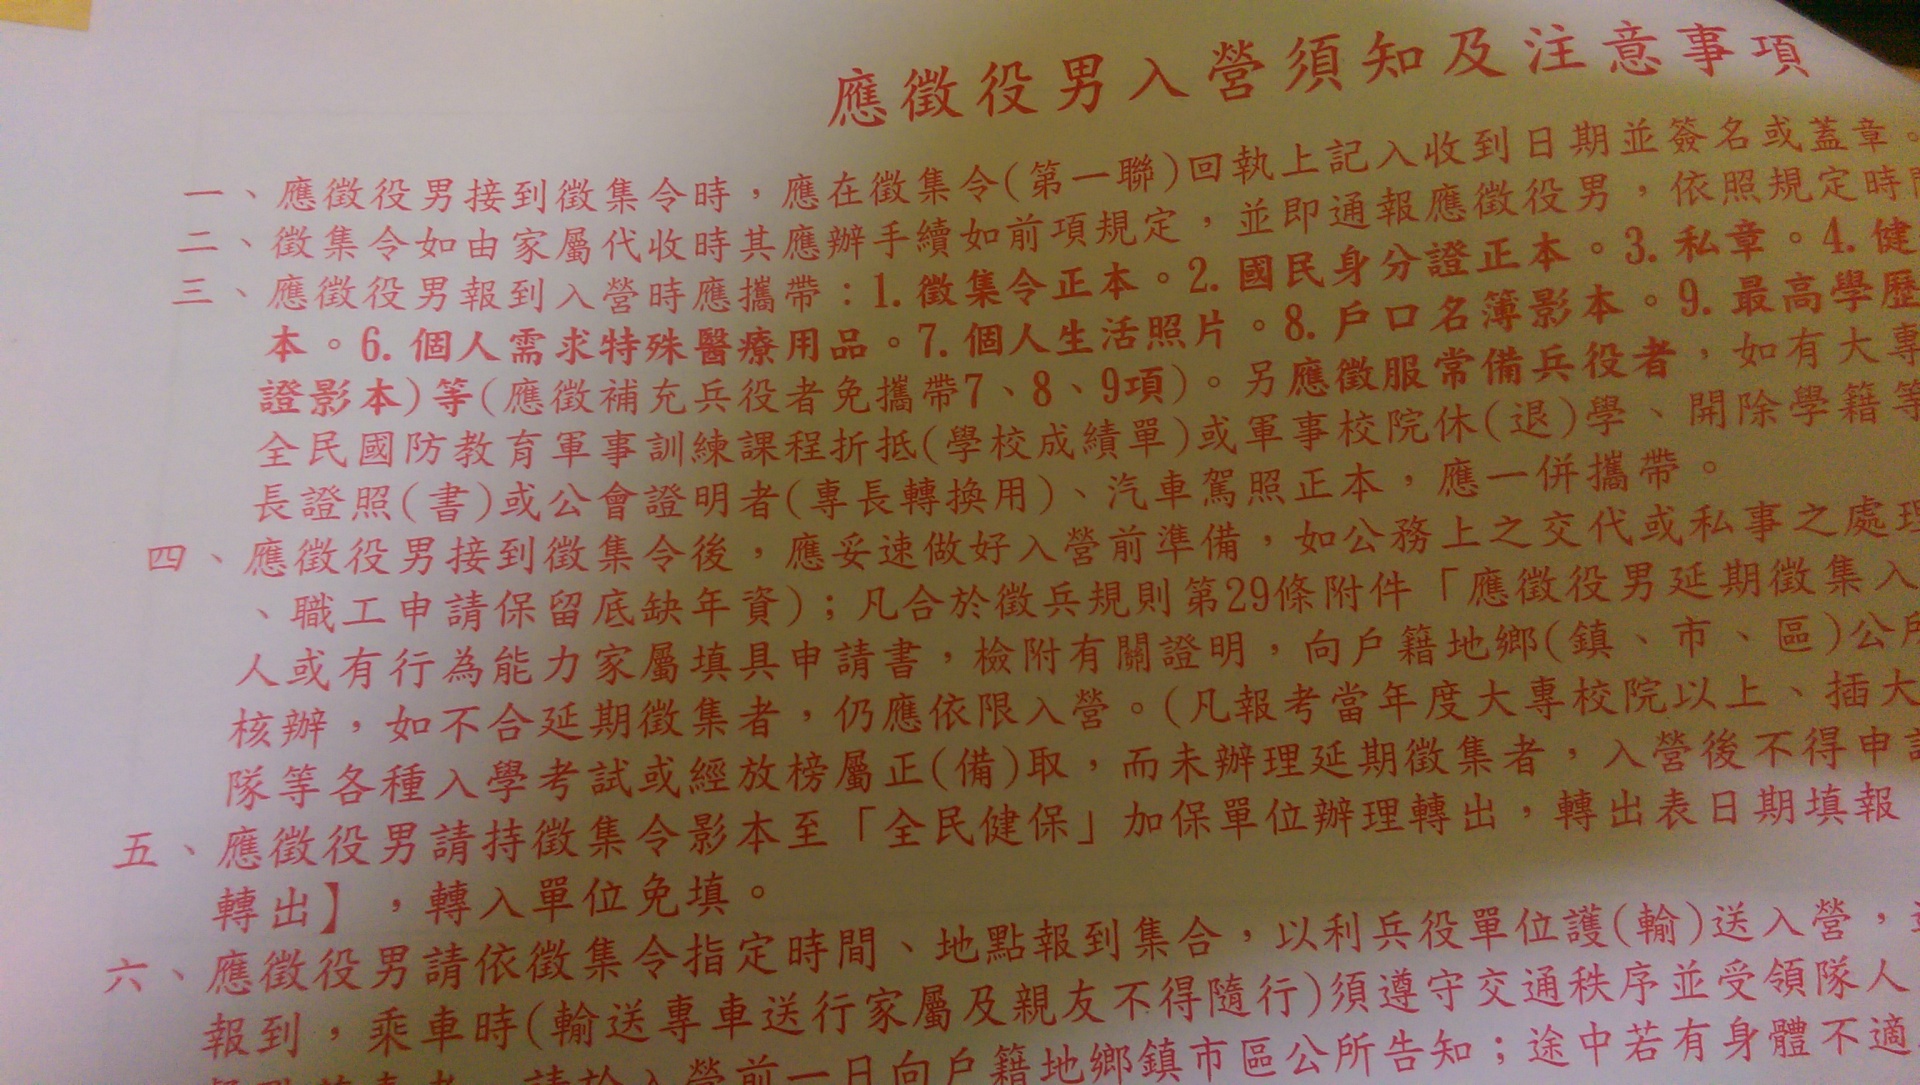 應徵役男入營須知及注意事項
一、應徵役男接到徵集令時，應在徵集令(第一聯)回執上記入收到日期並簽名或蓋章。
二、徵集令如由家屬代收時其應辦手續如前項規定，並即通報應徵役男，依照規定時間
三、應徵役男報到入營時應攜帶：1.徵集令正本。2.國民身分證正本。3.私章。4.健
本。6.個人需求特殊醫療用品。7.個人生活照片。8.戶口名簿影本。9.最高學歷
證影本)等(應徵補充兵役者免攜帶7、8、9項)。另應徵服常備兵役者，如有大專
全民國防教育軍事訓練課程折抵(學校成績單)或軍事校院休(退)學、開除學籍等
長證照(書)或公會證明者(專長轉換用)、汽車駕照正本，應一併攜帶。
四、應徵役男接到徵集令後，應妥速做好入營前準備，如公務上之交代或私事之處理
、職工申請保留底缺年資)；凡合於徵兵規則第29條附件「應徵役男延期徵集入
人或有行為能力家屬填具申請書，檢附有關證明，向戶籍地鄉(鎮、市、區)公所
核辦，如不合延期徵集者，仍應依限入營。(凡報考當年度大專校院以上、插大
隊等各種入學考試或經放榜屬正(備)取，而未辦理延期徵集者，入營後不得申請
五、應徵役男請持徵集令影本至「全民健保」加保單位辦理轉出，轉出表日期填報
轉出】，轉入單位免填。
六、應徵役男請依徵集令指定時間、地點報到集合，以利兵役單位護(輸)送入營，
報到，乘車時(輸送專車送行家屬及親友不得隨行)須遵守交通秩序並受領隊人
請於入營前一日向戶籍地鄉鎮市區公所告知；途中若有身體不適